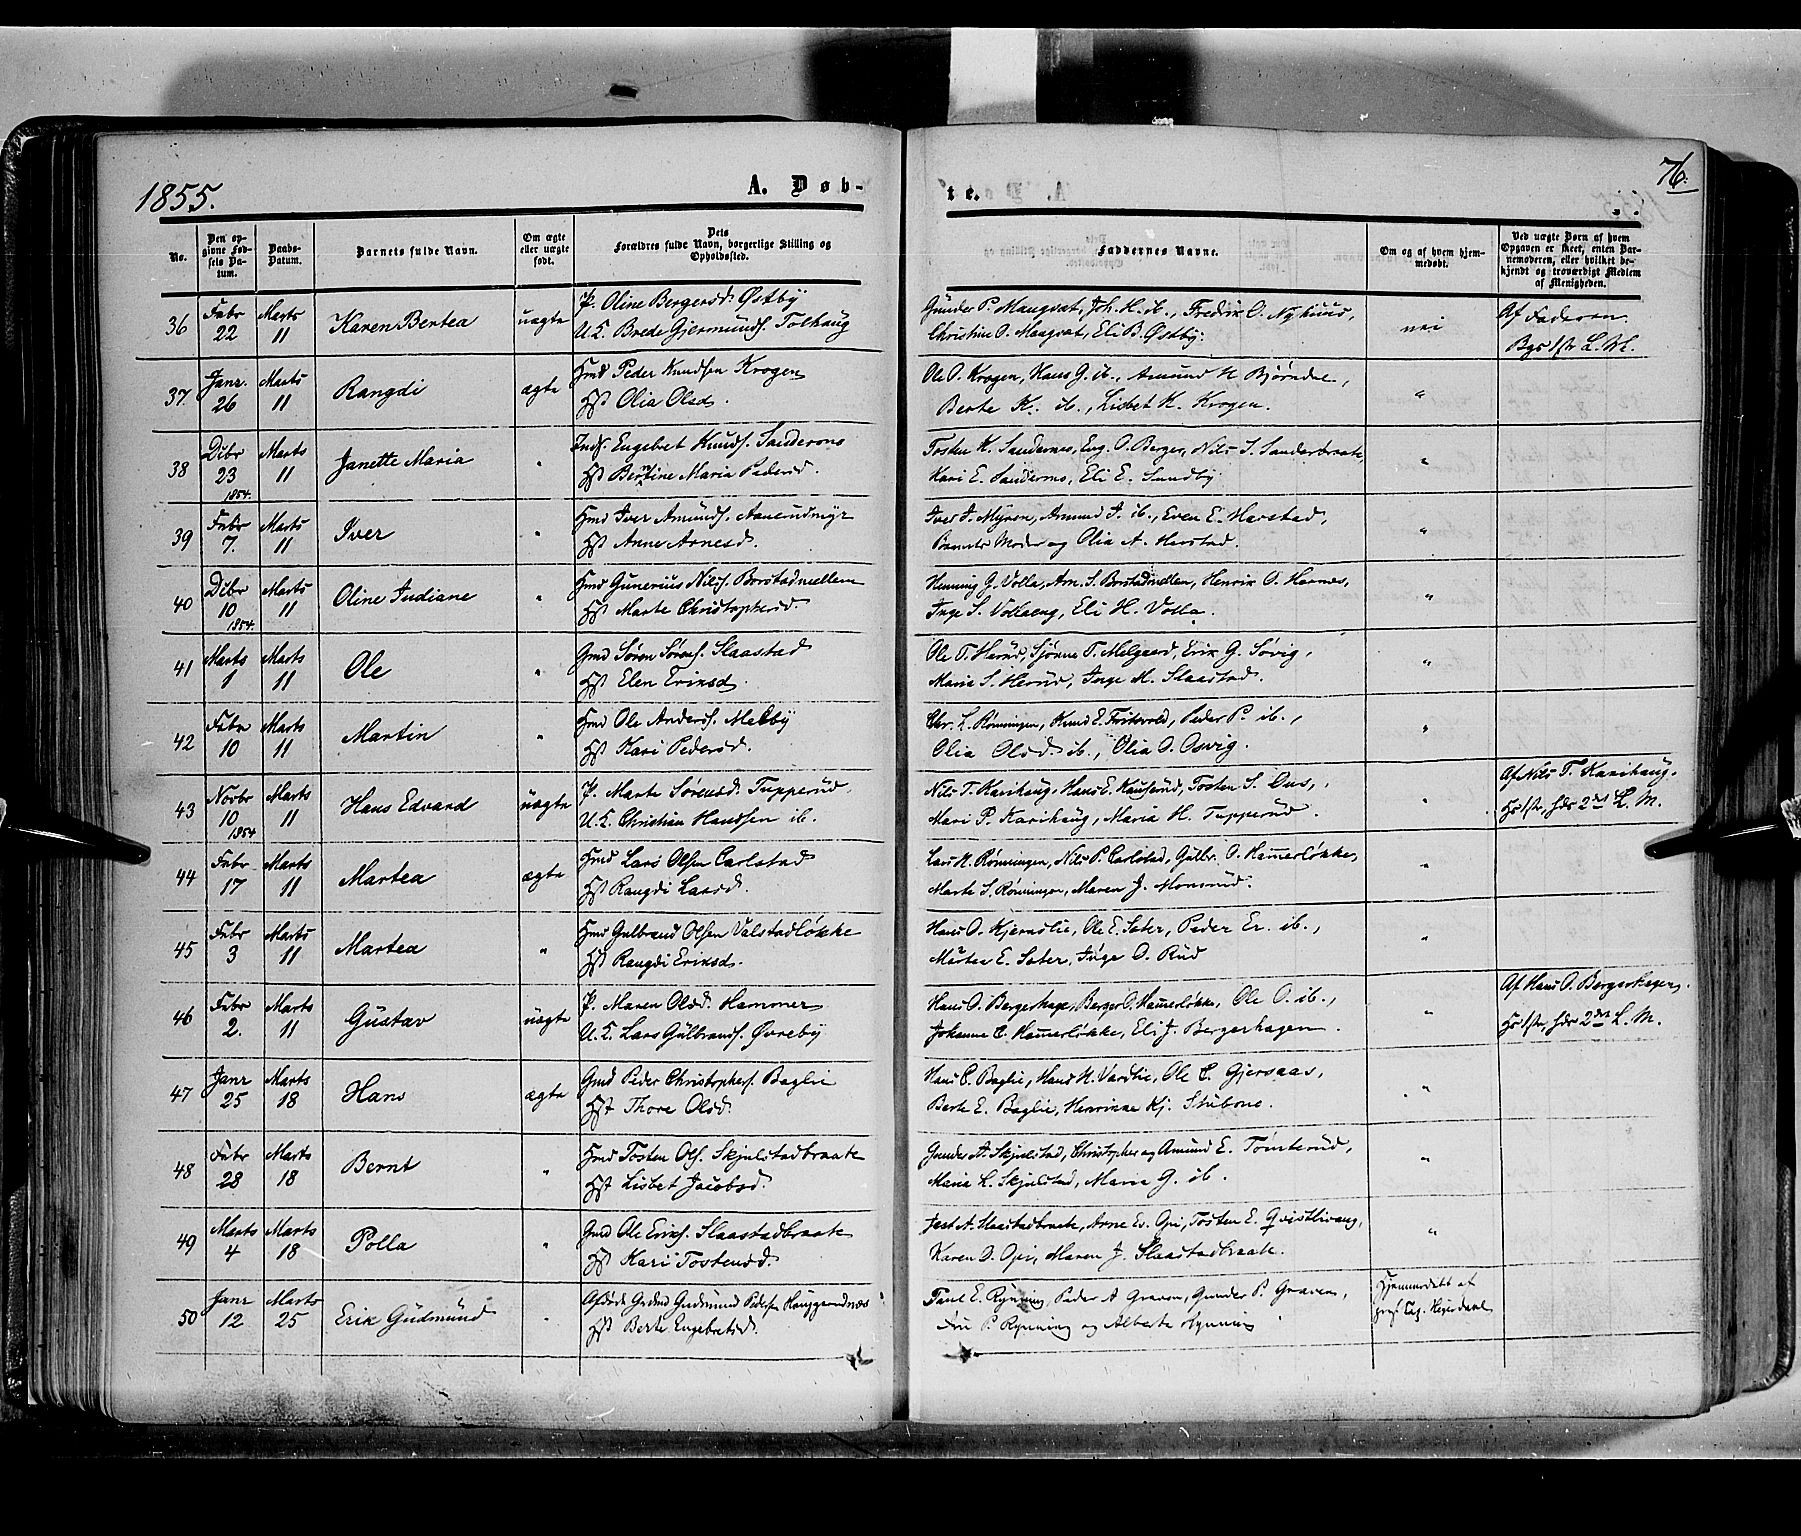 1855.
A. Døb-
te.
76.
No.
Den op-
givne Fød-
sels Da-
tum.
Daabs-
Datum.
Barnets fulde Navn.
Om ægte
eller uægte
født.
Dets
Forældres fulde Navn, borgerlige Stilling og
Opholdssted.
Faddernes Navne.
Om og af hvem hjem-
medøbt.
Ved uægte Børn af hvem
Opgaven er skeet, enten Bar-
nemoderen, eller hvilket be-
kjendt og troværdigt Medlem
af Menigheden.
36 Febr 22 Marts 11 Karen Bertea uægte P. Oline Bergersd. Østby
U. K. Brede Gjermunds. Tolhaug
Gunder P. Maugset, Joh. H. ib., Fredrik O. Nyhuus,
Christine O. Maugset, Eli B. Østby.
nei
Af Faderen
37. Janr. 26 Marts 11 Rangdi ægte Hmd Peder Knudsen Krogen
Hst Olia Olsd.
Ole O. Krogen, Hans G. ib., Amund H. Bjørndal,
Berte K. ib., Lisbet K. Krogen.
"
38 Dcbr 23 1854. Marts 11 Janette Maria " Inds. Engebret Knuds. Sandernes
Hst Berntine Maria Pedersd.
Tosten K. Sandernes, Eng. O. Berger, Nils S. Sanderbraate,
Kari E. Sandernes, Eli E. Sundby
"
39 Febr 7. Marts 11 Iver " Hmd Iver Amunds. Aanerudmyr
Hst Anne Arnesd.
Iver J. Myren, Amund J. ib., Even E. Harstad,
Barnets Moder og Olia A. Harstad.
"
40 Dcbr 10 1854. Marts 11 Oline Indiane " Hmd Gunerius Nils. Borstadmellem
Hst Marte Christophersd.
Henning G. Volla, Arn. S. Borstadmellem, Henrik O. Harnes,
Inge S. Vollaeng, Eli H. Volla.
"
41 Marts 1 Marts 11 Ole " Gmd Søren Sørens. Slaastad
Hst Elen Eriksd.
Ole T. Herud, Sjønne T. Melgaard, Erik G. Søvig,
Maria S. Herud, Inge M. Slaastad.
"
42 Febr 10 Marts 11 Martin " Hmd Ole Anders. Melby
Hst Kari Pedersd.
Chr. L. Rønningen, Knud E. Fritsvold, Peder P. ib.,
Olia Olsd. ib., Olia O. Osvig.
"
43 Novbr 10 1854 Marts 11 Hans Edvard uægte P. Marte Sørensd. Tupperud.
U. K. Christian Hansen ib.
Nils T. Karihaug, Hans E. Kauserud, Tosten S. Dus,
Mari P. Karihaug, Maria H. Tupperud.
"
Af Nils T. Karihaug.
44 Febr 17 Marts 11 Martea ægte Hmd Lars Olsen Carlstad
Hst Rangdi Larsd.
Lars N. Rønningen, Nils P. Carlstad, Gulbr. O. Hamerløkke,
Marte S. Rønningen, Maren J. Monsrud.
"
45 Febr 3 Marts 11 Martea " Hmd Gulbrand Olsen Valstadløkke
Hst Rangdi Eriksd.
Hans O. Kjernslie, Ole E. Sæter, Peder Er. ib.,
Martea E. Sæter, Inge O. Rud
"
46 Febr 2. Marts 11 Gustav uægte P. Maren Olsd. Hammer
U. K. Lars Gulbrands. Øvreby
Hans O. Bergerhagen, Berger O. Hamerløkke, Ole O. ib.,
Johanne C. Hamerløkke, Eli J. Bergerhagen.
"
Af Hans O. Bergerhagen.
47 Janr 25 Marts 18 Hans ægte Gmd Peder Christophers. Baglie
Hst Thore Olsd.
Hans C. Baglie, Hans N. Vardlie, Ole C. Gjersaas,
Berte E. Baglie, Henrikke Kj. Stubone.
"
48 Febr 28 Marts 18 Bernt " Hmd Tosten Ols. Skjulstadbraate
Hst Lisbet Jacobsd.
Gunder A. Skjulstad, Christopher og Amund E. Tomterud,
Maria L. Skjulstad, Maria G. ib.
"
49 Marts 4 Marts 18 Polla " Gmd Ole Eriks. Slaastadbraate
Hst Kari Tostensd.
Jest A. Slaastadbraate, Arne Er. Opi, Tosten E. Qvistlivang,
Karen O. Opi, Maren J. Slaastadbraate.
"
50 Janr 12 Marts 25 Erik Gudmund " Afdøde Grdmd Gudmund Pedersen Hauggrendnæs
Hst Berte Engebretsd.
Paul E. Rynning, Peder A Graven, Gunder P. Graven,
Fru P. Rynning og Alberta Rynning
Hjemmedøbt af